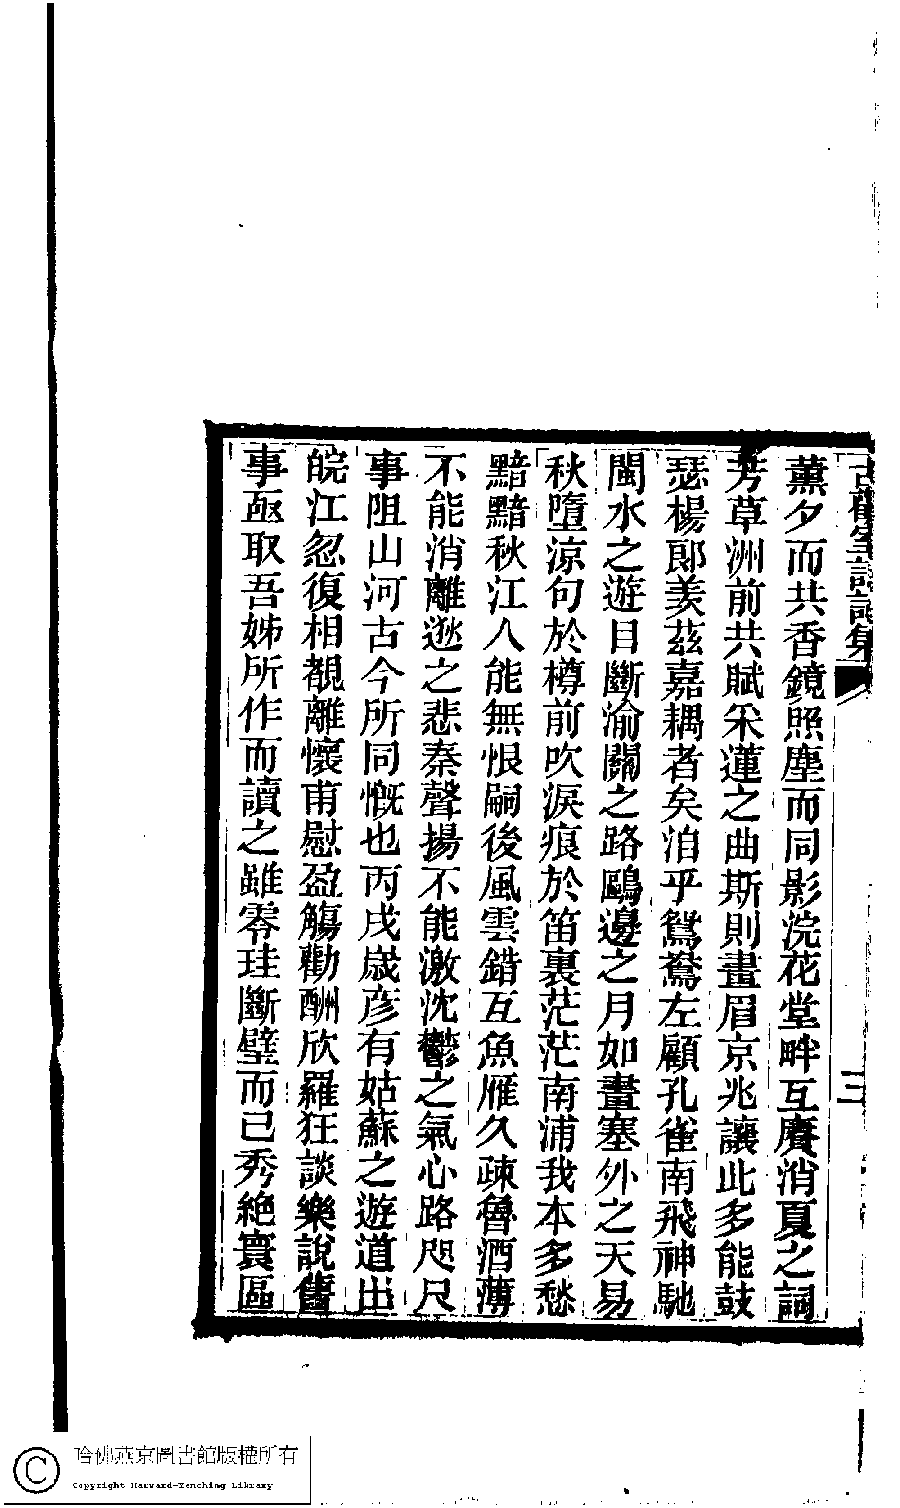 薰夕而共香鏡照塵而同影浣花堂畔互賡消夏之詞
芳草洲前共賦采蓮之曲斯則畫眉京兆讓此多能鼓
瑟楊郎羨茲嘉耦者矣洎乎鴛鴦左顧孔雀南飛神馳
閩水之遊目斷渝關之路鷗邊之月如畫塞外之天易
秋墮涼句於樽前吹淚痕於笛裏茫茫南浦我本多愁
黯黯秋江人能無恨嗣後風雲錯互魚雁久疎魯酒薄
不能消離逖之悲秦聲揚不能激沈鬱之氣心路咫尺
事阻山河古今所同慨也丙戌歲彥有姑蘇之遊道出
皖江忽復相覩離懷甫慰盈觴勸酬欣羅狂談樂說舊
事亟取吾姊所作而讀之雖零珪斷璧而已秀絕寰區
三
哈佛燕京圖書館版權所有
Copyright Harvard-Yenching Library